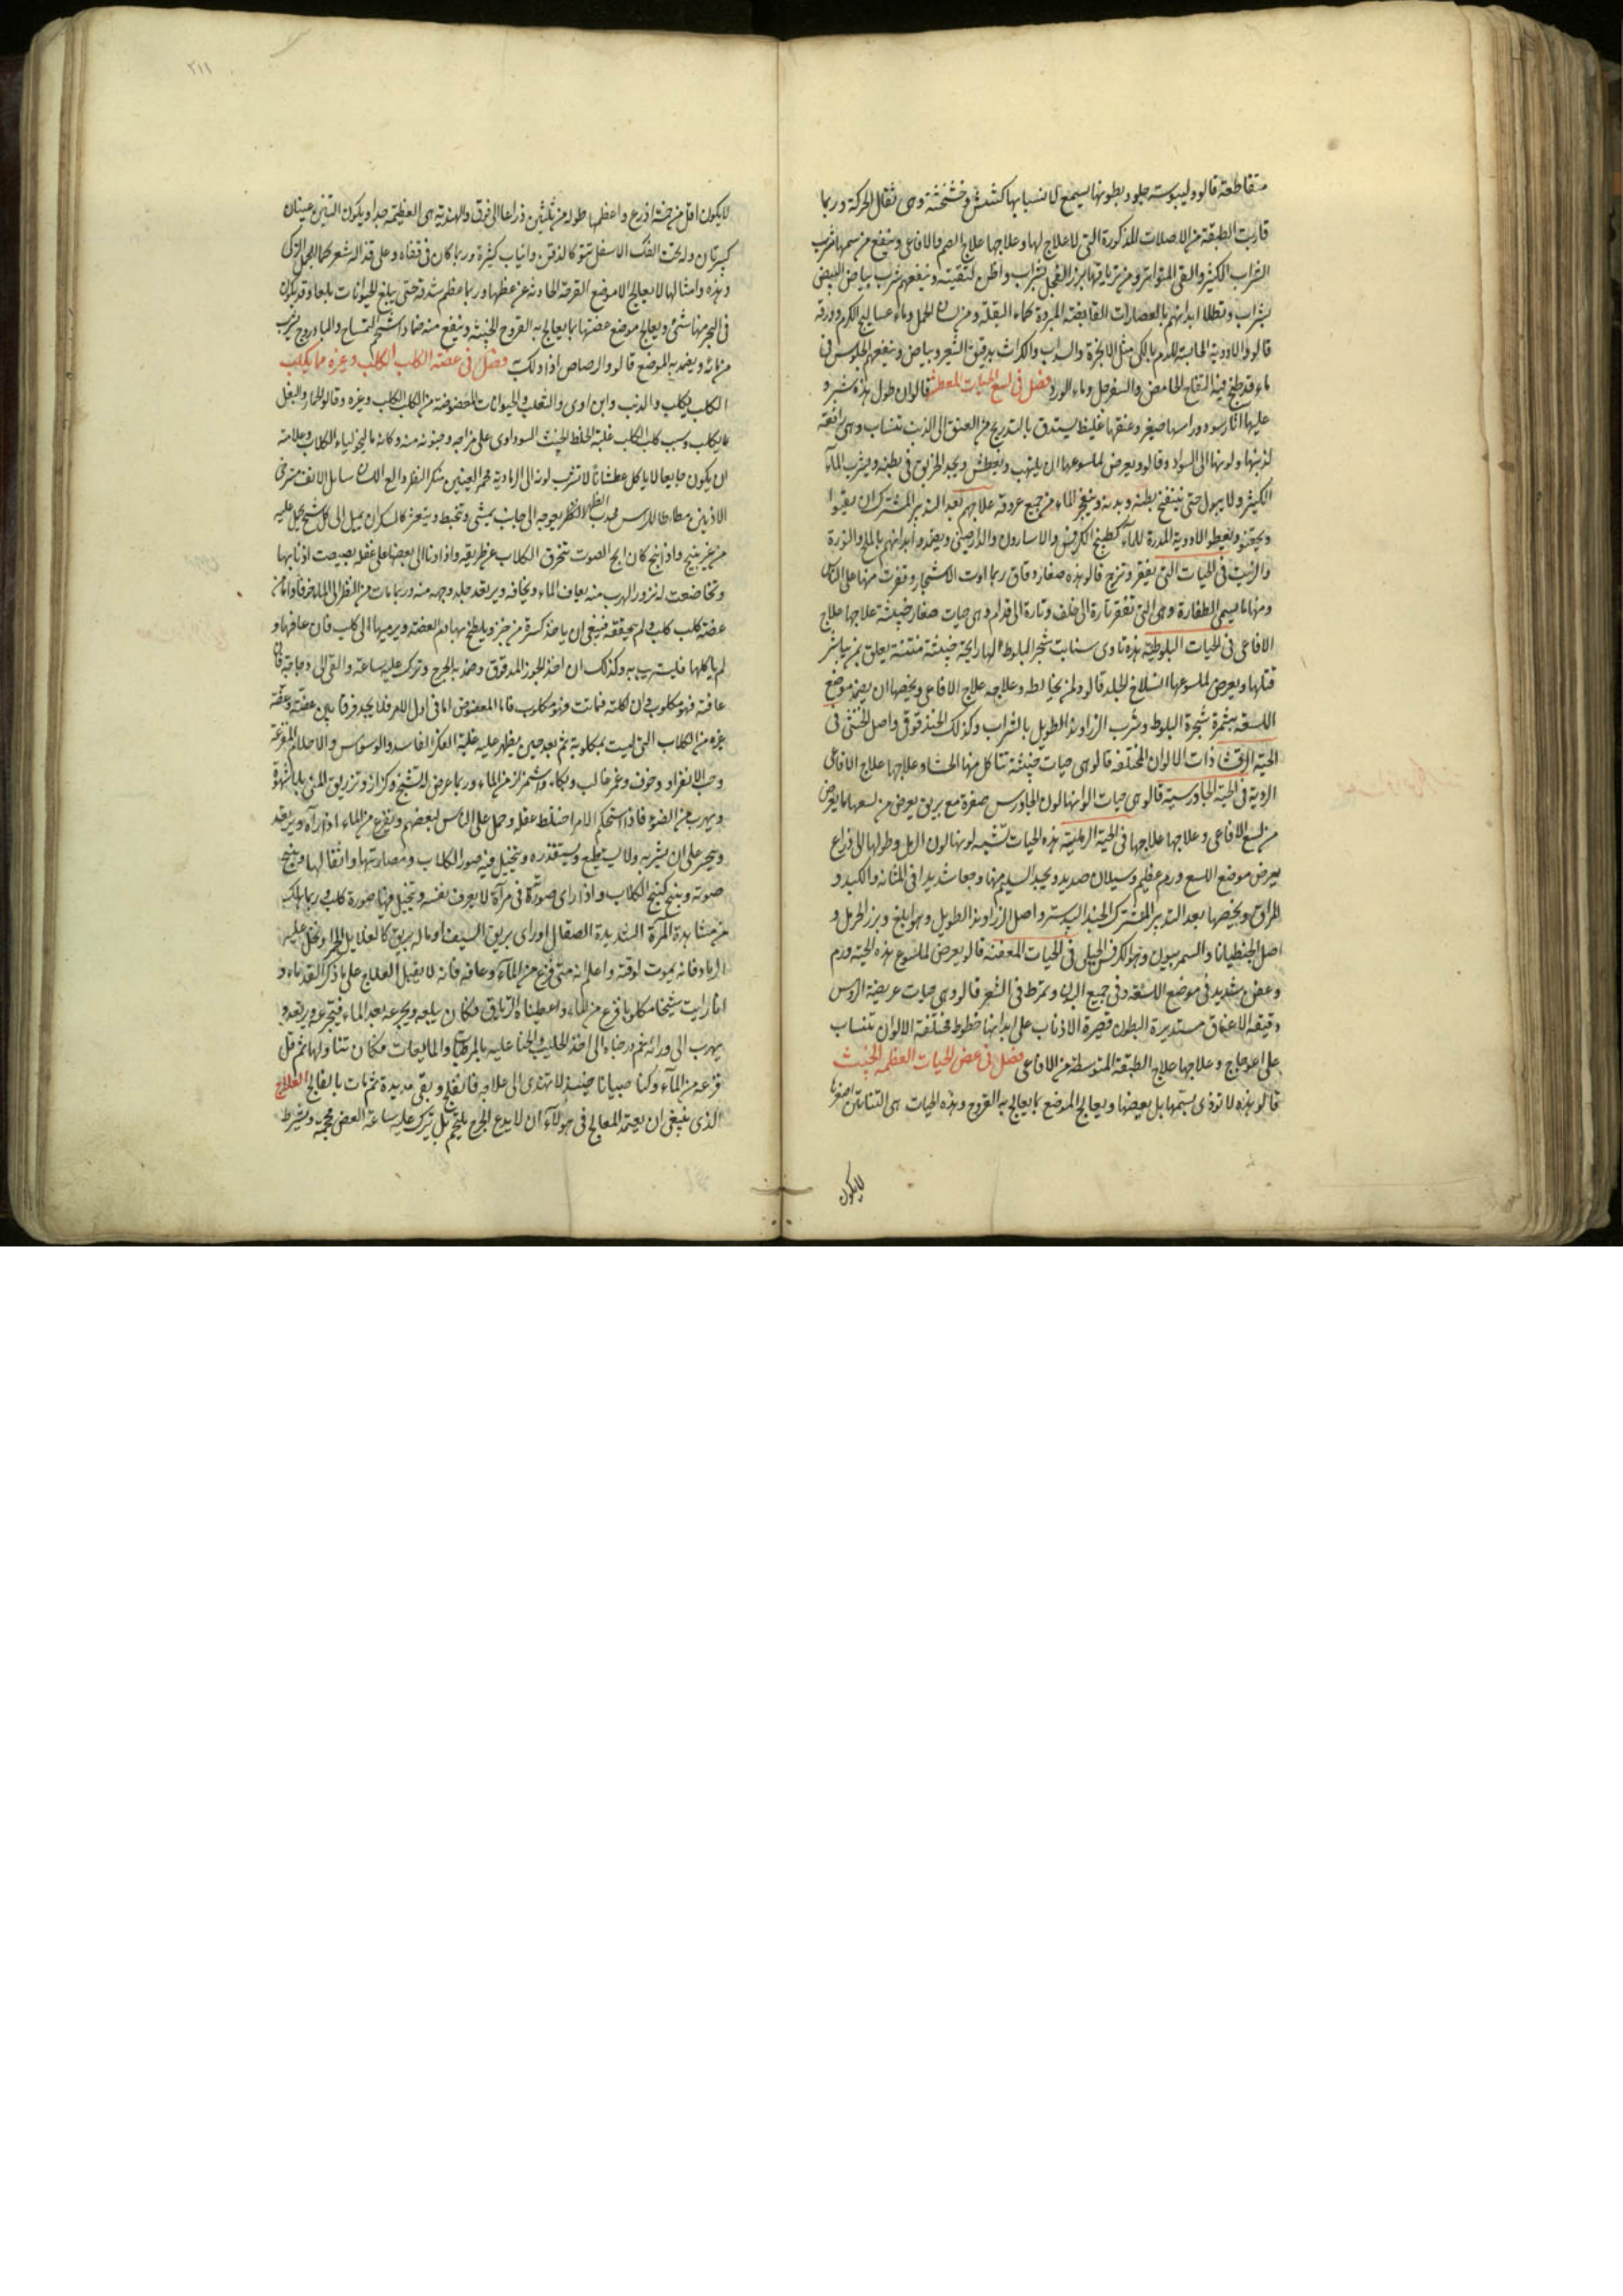 متقاطعة قالوا وليبوسة جلود بطونها يسمع لانسيابها كشش وخشخشة وهى ثقال الحركة وربما
قاربت الطبقة من الاصلات المذكورة التى لا علاج لها وعلاجها علاج الصم والافاعى وينفع من سمها شرب
الشراب الكثير والقى المتواتر ومن ترياقها بزر الفجل بشراب واظن لتقيته وينفعهم شرب بياض البيض
بشراب وتطلا ابدانهم بالعصارات القابضة المبردة كماء البقلة ومن لسان الحمل وماء عساليج الكرم وورقه
قالوا والادوية الجالبة للدم بالكى مثل الانجرة والسداب والكراث بدقيق الشعير وبياض وينفعهم الجلوس فى
ماء قد طبخ فيه التفاح الحامض والسفرجل وماء الورد فصل فى لسع الحيات المعطشة قالوا ان طول هذه شبر و
عليها اثار سود وراسها صغير وعنقها غليظ يستدق بالتدريج من العنق الى الذنب تنساب وهى رافعة
لذنبها ولونها الى السواد وقالوا ويعرض لملسوعها ان يلتهب ويعطش ويجد الحريق فى بطنه ويشرب الماء
الكثير ولا يبول حتى ينتفخ بطنه وبدنه وينفجر الماء من جميع عروقه علاجهم بعد التدبير المشترك ان يقيوا
ويحقنوا ويعطوا الادوية المدرة للماء كطبيخ الكرفس والاسارون والدارصينى ويضمدوا ابدانهم بالملح والنورة
والزيت فى الحيات التى تقفز وتزج قالوا هذه صغار دقاق ربما اوت الاشجار وقفزت منها على الناس
ومنها ما يسمى الطفارة وهى التى تقفز تارة الى خلف وتارة الى قدام وهى حيات صغار خبيثة علاجها علاج
الافاعى فى الحيات البلوطية هذه تاوى منابت شجر البلوط لها رائحة خبيثة منتنة يعلق بمن يباشر
قتلها ويعرض لملسوعها انسلاخ الجلد قالوا ولمن يخالطه وعلاجه علاج الافاعى ويخصها ان يضمد موضع
اللسعة بثمرة شجرة البلوط وشرب الزراوند الطويل بالشراب وكذلك الحندقوق واصل الخنثى فى
الحية الرقشا ذات الالوان المختلفة قالوا هى حيات خبيثة تتاكل منها الحشا وعلاجها علاج الافاعى
الردية فى الحية الجاورسية قالوا هى حيات الوانها لون الجاورس صفرة مع بريق يعرض من لسعها ما يعرض
من لسع الافاعى وعلاجها علاجها فى الحية الرملية هذه الحيات تشبه لونها لون الرمل وطولها الى ذراع
يعرض موضع اللسع ورم عظيم وسيلان صديد ويجد السليم منها وجعا شديدا فى المثانة والكبد و
المراق ويخصها بعد التدبير المشترك الجندبيدستر واصل الزراوند الطويل وهو ابلغ وبزر الحرمل و
اصل الجنطيانا والسمرنيون وهو الكرفس الجبلى فى الحيات المعفنة قالوا يعرض لملسوع هذه الحية ورم
وعض شديد فى موضع اللسعة وفى جميع البدن وتمرط فى الشعر قالوا وهى حيات عريضة الرؤس
دقيقة الاعناق مستديرة البطون قصيرة الاذناب على ابدانها خطوط مختلفة الالوان تنساب
على اعوجاج وعلاجها علاج الطبقة المتوسطة من الافاعى فصل فى عض الحيات العظمية الجثث
قالوا هذه لا توذى بسمها بل بعضها ويعالج الموضع بما يعالج به القروح وهذه الحيات هى التنانين اصغرها
لا يكون
٢١١
لا يكون اقل من خمسة اذرع واعظمها طوله من ثلثين ذراعا الى فوق والهندية هى العظيمة جدا ويكون للتنين عينان
كبيرتان وله تحت الفك الاسفل نتوء كالذقن وانياب كثيرة وربما كان فى قفاه وعلى قذاله شعر كما للخيل التركى
وهذه وامثالها لا يعالج الا موضع القرحة الحادثة عن عظها وربما عظم شدقه حتى يبلغ الحيوانات بلعا وقد يكون
فى البحر منها شئ ويعالج موضع عضتها بما يعالج به القروح الخبيثة وينفع منه ضمادا شحم التمساح والبادروج يشرب
من مائه ويضمد به الموضع قالوا والرصاص اذا دلكت فصل فى عضة الكلب الكلب وغيره مما يكلب
الكلب يكلب والذئب وابن اوى والثعلب والحيوانات المعضوضة من الكلب الكلب وغيره وقالوا الحمار والبغل
مما يكلب وسبب كلب الكلب غلبة الخلط الخبيث السوداوى على مزاجه وجنونه منه وكانه مالنخوليا الكلاب وعلامته
ان يكون جايعا لا ياكل عطشانا لا يشرب لونه الى الرمادية محمر العينين منكر النظر دالع اللسان سايل الانف مسترخى
الاذنين مطاطا للراس محدب الظهر يعوجه الى جانب يمشى وتخبط ويتعثر كالسكران يميل الى كل شبح يحمل عليه
من غير نبح واذا نبح كان ابح الصوت تنحرف الكلاب عن طريقه واذا دنا الى بعضها على غفلة بصبصت اذنابها
وتخاضعت له تزور الهرب منه يعاف الماء ويخافه ويرتعد جلد وجهه منه وربما مات من النظر الى الماء خوفا واما من
عضه كلب كلب ولم يحققه فينبغى ان ياخذ كسرة من خبز ويلطخ بها دم العضة ويرميها الى كلب فان عافها و
لم ياكلها فليسترب به وكذلك ان اخذ الجوز المدقوق وضمد به الجرح وتركت عليه ساعة والقى الى دجاجة فان
عافته فهو مكلوب وان اكلته فماتت فهو مكلوب فاما المعضوض اما فى اول الامر فلا يجد فرقا بين عضته وعضة
غيره من الكلاب التى ليست بمكلوبة ثم بعد حين يظهر عليه غلبة الفكر الفاسد والوسواس والاحلام المفزعة
وحب الانفراد وخوف وغم غالب وبكاء واشمئزاز من الماء وربما عرض له تشنج وكزاز وتزريق المنى بلا شهوة
ويهرب من الضوء فاذا استحكم الامر اختلط عقله وحمل على الناس لبعضهم ويفزع من الماء اذا رآه ويرتعد
ويجبر على ان يشربه ولا يستطيع ويستقذره ويتخيل فيه صور الكلاب ومصارينها واثفالها وينبح
صوته وينبح كنبح الكلاب واذا راى صورته فى مرآة لا يعرف نفسه ويتخيل فيها صورة كلب وربما هلك
من مشاهدة المرآة الشديدة الصقال او راى بريق السيف او ما له بريق كالغلايل الحمر او
الرماد فانه يموت لوقته واعلم انه متى فزع من الماء وعافه فانه لا يقبل العلاج على ما ذكر القدماء و
انا رايت شيخا مكلوبا فزع من الماء واعطيناه الترياق فكان يبلعه ويجرعه بعد الماء فيتجرعه ويرتعد و
يهرب الى ورائه ثم درجناه الى اخذ الحليب والحنا عليه بالمرطبات والمايعات فكان يتناولها ثم قل
فزعه من الماء وكنا صبيانا حينئذ لا نهتدى الى علاجه فانفلج وبقى مديدة ثم مات بالفالج العلاج
الذى ينبغى ان يعتمد المعالج فى هولاء ان لا يدع الجرح يلتحم بل يترك عليه ساعة العض محجمة ويشرط